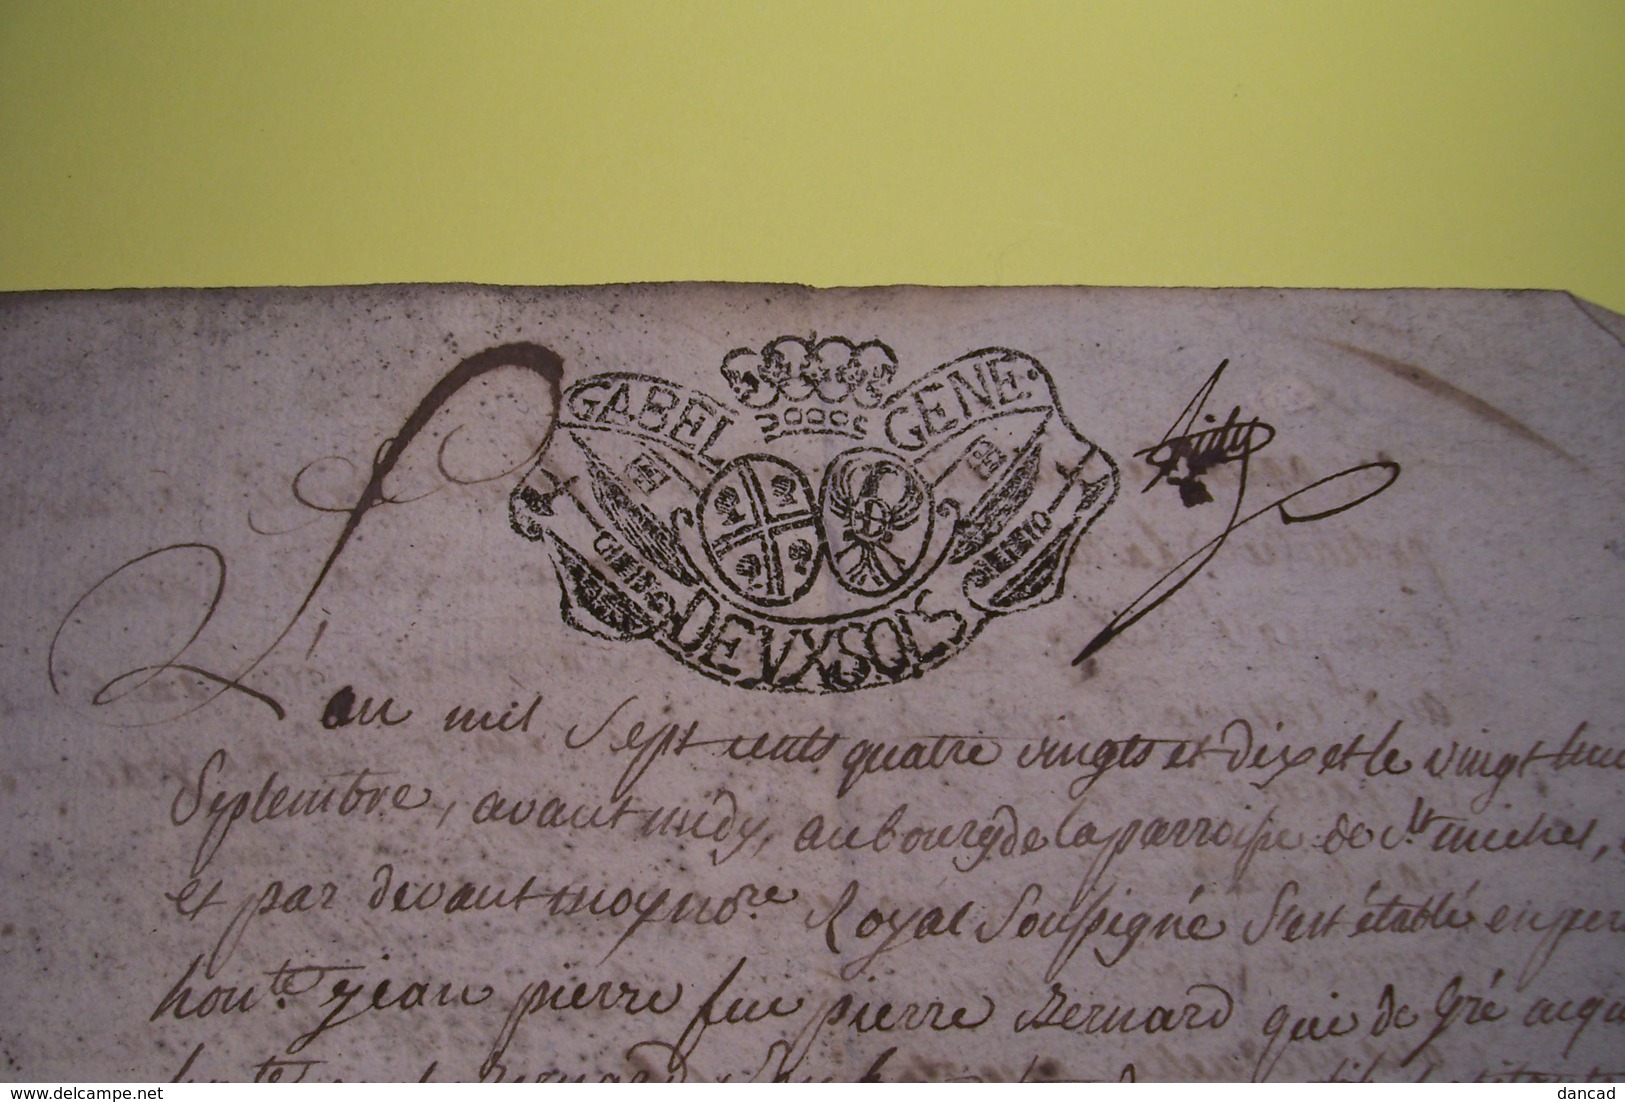 GABEL GENE.
DEVX SOLS
L'an mil sept cents quatre vingts et dix et le vingt
Septembre, avant midy, au bourg de la parroisse de St michel,
et par devant moy no.re Royal soussigné s'est établi en per
hon.te jean pierre feu pierre Bernard qui de gré
Bernard
delcampe.net
dancad